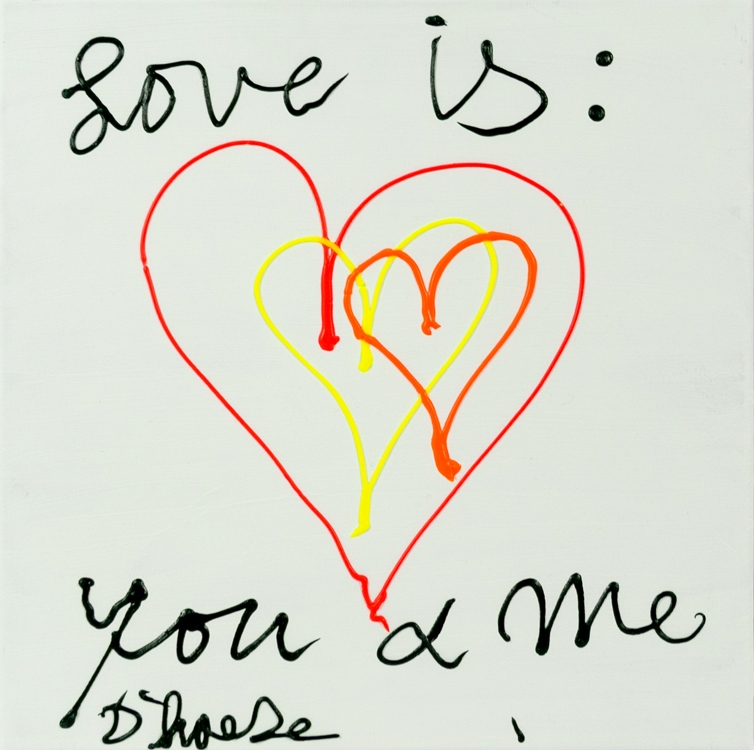 Love is:
you & me
D'hoese